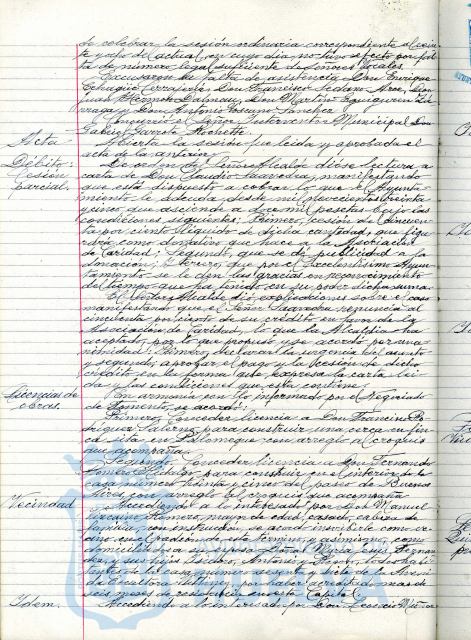 de celebrar la sesión ordinaria correspondiente al
y ocho del actual, en cuyo día no tuvo efecto por fal-
ta de número legal suficiente de señores Vocales.
Excusaron su falta de asistencia, Don Enrique
Don Francisco Sedano Arce, Don
Juan Dalmeda, Don Martín Eguiguren
y Don Antonio Sánchez.
Concurrió el Señor Interventor Municipal Don
Gabriel Hochette.
Acta
Abierta la sesión fue leída y aprobada el
acta de la anterior.
Débito:
Cesión
parcial.
De orden del Señor Alcalde dióse lectura a
carta de Don Claudio Saavedra, manifestando
que está dispuesto a cobrar lo que el Ayunta-
miento le adeuda desde mil novecientos treinta
y uno, que asciende a mil pesetas bajo las
condiciones siguientes: Primero, cesión de cincuen-
ta por ciento líquido de dicha cantidad, que figu-
rará como donativo que hace a la Asociación
de Caridad; Segundo, que se dé publicidad a la
donación; Tercero, que por el Excelentísimo Ayun-
tamiento se le den las gracias en reconocimiento
del tiempo que ha tenido en su poder dicha suma.
El Señor Alcalde dió explicaciones sobre el caso
manifestando que el Señor Saavedra renuncia al
cincuenta por ciento de su crédito en favor de la
Asociación de Caridad, lo que la Alcaldía ha
aceptado, por lo que propuso y se acordó por una-
nimidad: Primero, declarar la urgencia del asunto
y segundo, aprobar el pago y la cesión de dicho
crédito en la forma que expresa la carta leí-
da y las condiciones que ésta contiene.
Licencias de
obras.
En armonía con lo informado por el Negociado
de Fomento se acordó:
Primero: Conceder licencia a Don Francisco Ro-
dríguez Palerno para construir una cerca en fin-
ca sita en con arreglo al croquis
que acompaña.
Segundo: Conceder licencia a Don Fernando
Romero para construir en el interior de la
casa número treinta y cinco del paseo de Buenos
Aires, con arreglo al croquis que acompaña
Vecindad
Accediendo a lo interesado por Don Manuel
Romero, mayor de edad, casado, cabeza de
familia, con instrucción, se acordó inscribirle como ve-
cino en el padrón de este término, y asimismo, como
domiciliados a su esposa Doña María Jesús Fernán-
dez, y sus hijos Isidro, Antonio y todos habi-
tantes de la casa número sesenta y siete de la Avenida
de por haber acreditado más de
seis meses de residencia en esta Capital.
Idem.
Accediendo a lo interesado por Don